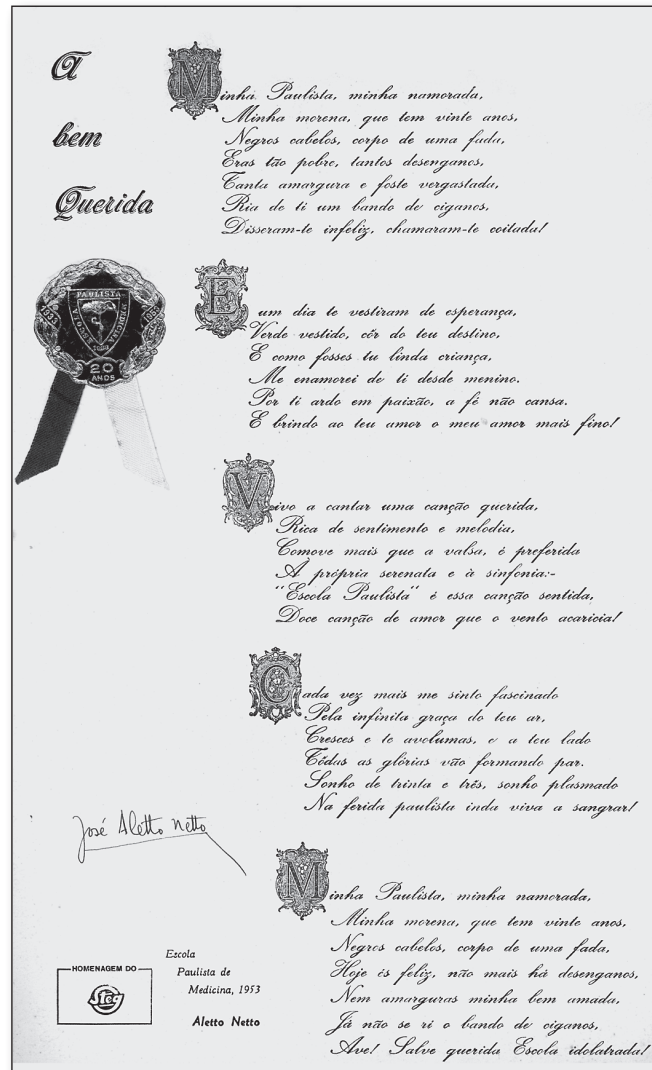 A
bem
Querida
Minha Paulista, minha namorada,
Minha morena, que tem vinte anos,
Negros cabelos, corpo de uma fada,
Eras tão pobre, tantos desenganos,
Tanta amargura e foste vergastada,
Ria de ti um bando de ciganos,
Disseram-te infeliz, chamaram-te coitada!
E um dia te vestiram de esperança,
Verde vestido, côr do teu destino,
E como fosses tu linda criança,
Me enamorei de ti desde menino.
Por ti ardo em paixão, a fé não cansa.
E brindo ao teu amor o meu amor mais fino!
Vivo a cantar uma canção querida,
Rica de sentimento e melodia,
Comove mais que a valsa, é preferida
A própria serenata e à sinfonia:-
"Escola Paulista" é essa canção sentida,
Doce canção de amor que o vento acaricia!
Cada vez mais me sinto fascinado
Pela infinita graça do teu ar,
Cresces e te avolumas, e a teu lado
Tôdas as glórias vão formando par.
Sonho de trinta e três, sonho plasmado
Na ferida paulista inda viva a sangrar!
Minha Paulista, minha namorada,
Minha morena, que tem vinte anos,
Negros cabelos, corpo de uma fada,
Hoje és feliz, não mais há desenganos,
Nem amarguras minha bem amada,
Já não se ri o bando de ciganos,
Ave! Salve querida Escola idolatrada!
PAULISTA
ESCOLA
MEDICINA
1933
1953
20
ANOS
José Aletto Netto
HOMENAGEM DO
Escola
Paulista de
Medicina, 1953
Aletto Netto